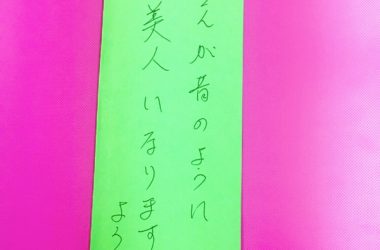 んが昔のように
美人いなります
よう